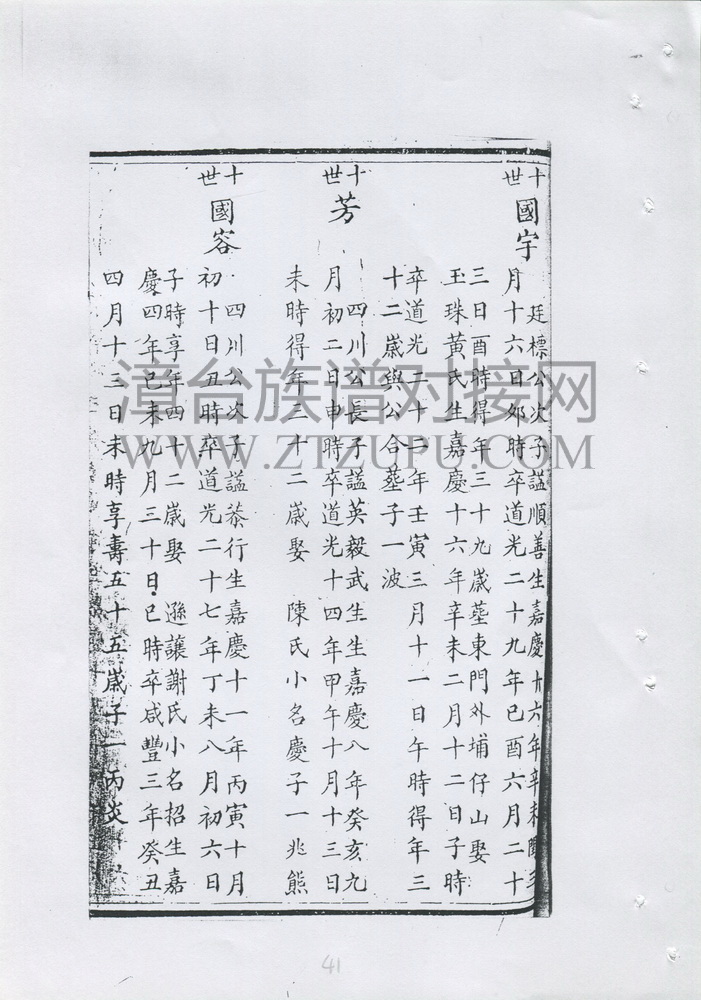 十世
國宇
廷標公次子謚順善生嘉慶十六年辛未閏三
月十六日夘時卒道光二十九年已酉六月二十
三日酉時得年三十九歲塟東門外埔仔山娶
玉珠黃氏生嘉慶十六年辛未二月十二日子時
卒道光二十二年壬寅三月十一日午時得年三
十二歲與公合塟子一波
十世
芳
四川公長子謚英毅武生生嘉慶八年癸亥九
月初二日申時卒道光十四年甲午十月十三日
未時得年三十二歲娶 陳氏小名慶子一兆熊
十世
國容
四川公次子謚恭行生嘉慶十一年丙寅十月
初十日丑時卒道光二十七年丁未八月初六日
子時享年四十二歲娶 遜讓謝氏小名招生嘉
慶四年已未九月三十日已時卒咸豐三年癸丑
四月十三日未時享壽五十五歲子一丙炎
漳台族谱对接网
WWW.ZTZUPU.COM
41